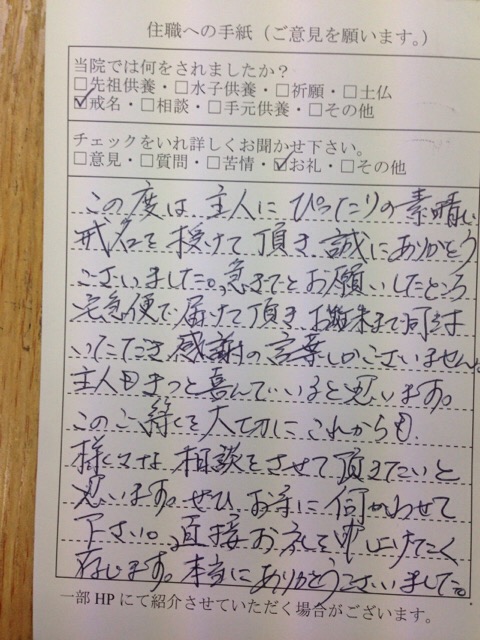 住職への手紙（ご意見を願います。）
当院では何をされましたか？
□先祖供養・□水子供養・□祈願・□士仏
☑戒名・□相談・□手元供養・□その他
チェックをいれ詳しくお聞かせ下さい。
□意見・□質問・□苦情・☑お礼・□その他
この度は主人にぴったりの素晴しい
戒名を授けて頂き誠にありがとう
ございました。急きょとお願いしたところ
宅急便で届けて頂き お数珠まで同封
いただき感謝の言葉しかございません。
主人もきっと喜んでいると思います。
このご縁を大切にこれからも
様々な相談をさせて頂きたいと
思います。ぜひ、お寺に伺わせて
下さい。直接お礼を申し上げたく
存じます。本当にありがとうございました。
一部HPにて紹介させていただく場合がございます。